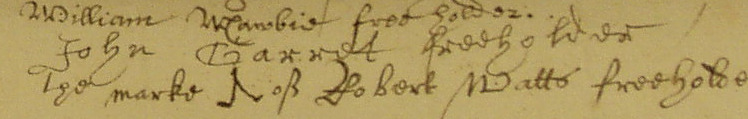 William Mawbie freeholder.
John Garret freeholder
The marke of Robert Watts freeholde